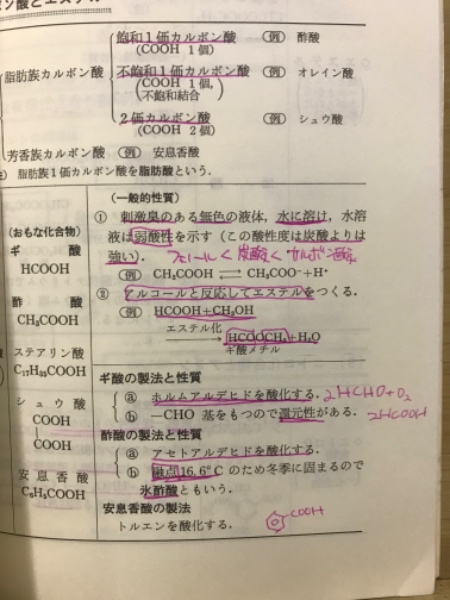 ン酸とエステル
飽和1価カルボン酸 例 酢酸
(COOH 1個)
脂肪族カルボン酸
不飽和1価カルボン酸 例 オレイン酸
(COOH 1個,
不飽和結合)
2価カルボン酸 例 シュウ酸
(COOH 2個)
芳香族カルボン酸 例 安息香酸
脂肪族1価カルボン酸を脂肪酸という.
(おもな化合物)
ギ 酸
HCOOH
酢 酸
CH₃COOH
ステアリン酸
C₁₇H₃₅COOH
シュウ酸
COOH
COOH
安息香酸
C₆H₅COOH
(一般的性質)
① 刺激臭のある無色の液体,水に溶け,水溶
液は弱酸性を示す(この酸性度は炭酸よりは
強い).
フェノール<炭酸<カルボン酸
例 CH₃COOH ⇄ CH₃COO⁻+H⁺
② アルコールと反応してエステルをつくる.
例 HCOOH+CH₃OH
エステル化
→ HCOOCH₃+H₂O
ギ酸メチル
ギ酸の製法と性質
ⓐ ホルムアルデヒドを酸化する. 2HCHO+O₂
ⓑ −CHO 基をもつので還元性がある. 2HCOOH
酢酸の製法と性質
ⓐ アセトアルデヒドを酸化する.
ⓑ 融点16.6°C のため冬季に固まるので
氷酢酸ともいう.
安息香酸の製法
トルエンを酸化する. COOH